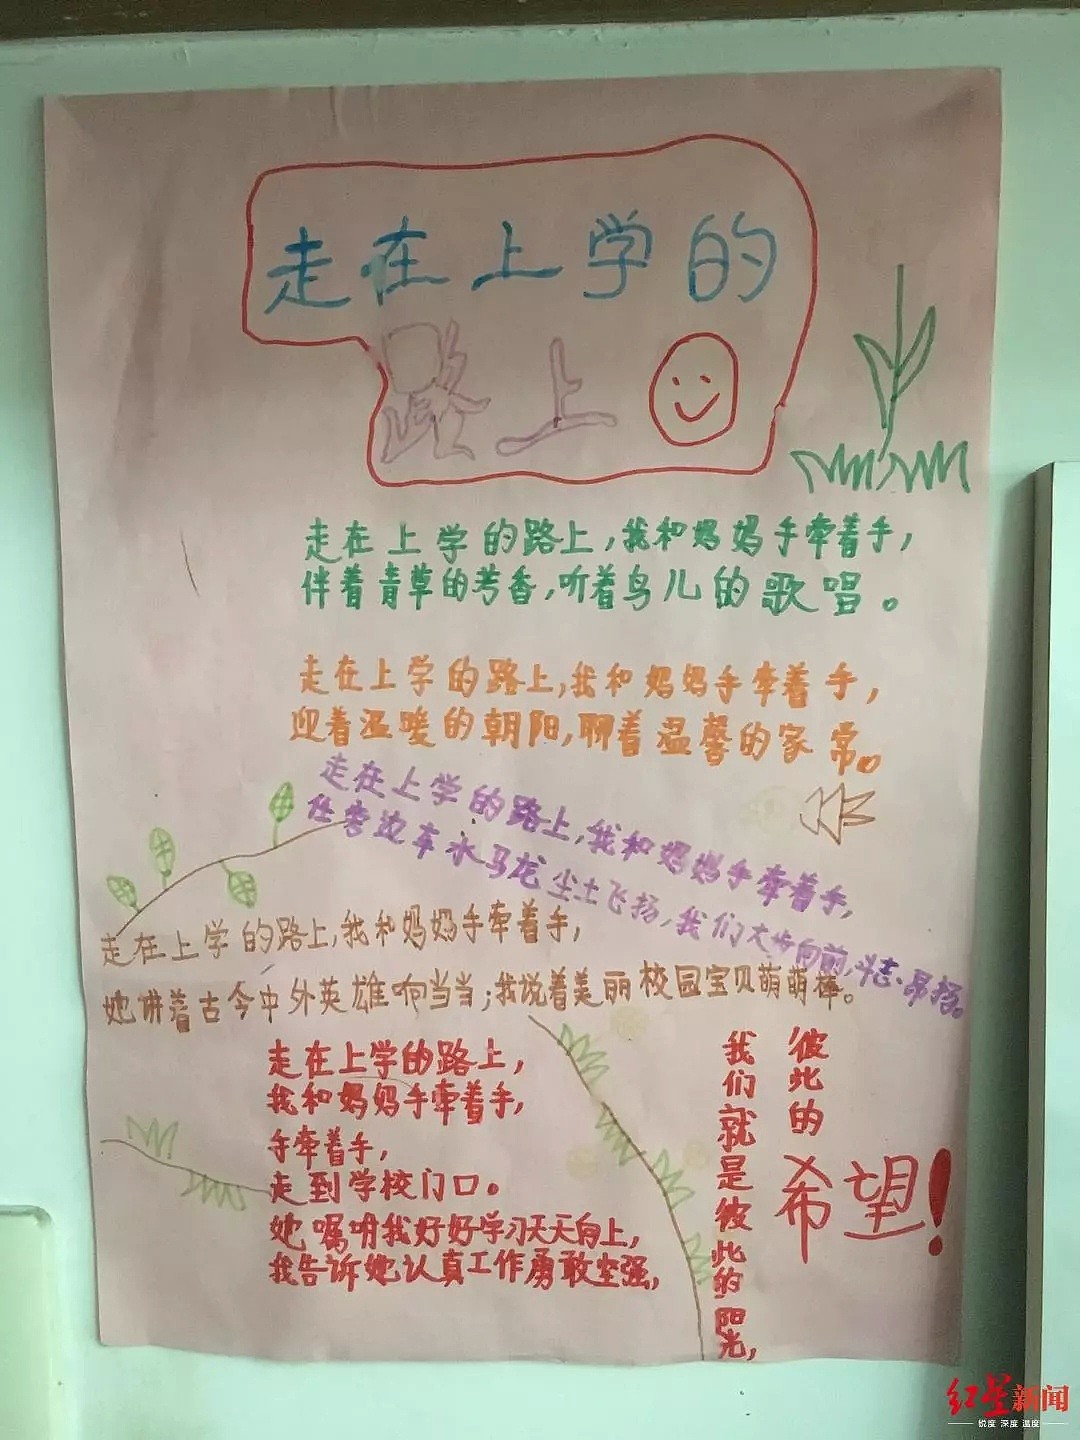 走在上学的
路上
走在上学的路上,我和妈妈手牵着手,
伴着青草的芳香,听着鸟儿的歌唱。
走在上学的路上,我和妈妈手牵着手,
迎着温暖的朝阳,聊着温馨的家常。
走在上学的路上,我和妈妈手牵着手,
任旁边车水马龙尘土飞扬,我们大步向前,斗志昂扬。
走在上学的路上,我和妈妈手牵着手,
她讲着古今中外英雄响当当;我说着美丽校园宝贝萌萌棒。
走在上学的路上,
我和妈妈手牵着手,
手牵着手,
走到学校门口。
她嘱咐我好好学习天天向上,
我告诉她认真工作勇敢坚强,
我们就是彼此的阳光,
彼此的
希望!
红星新闻
锐度 深度 温度